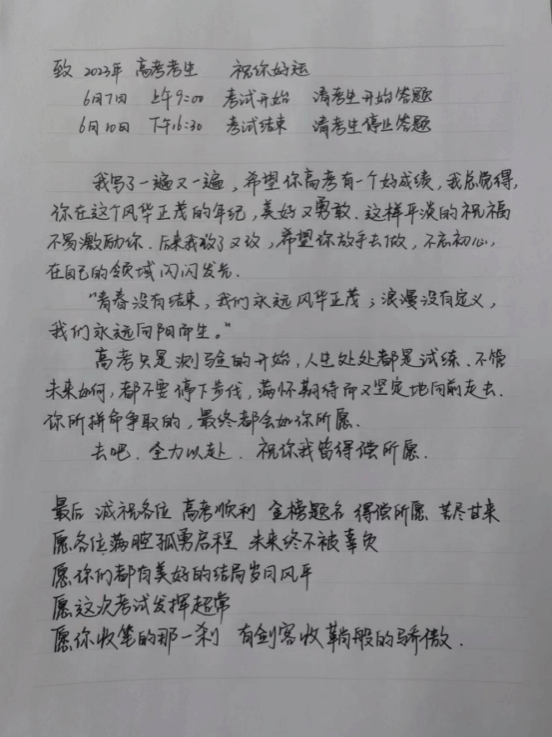 致 2023年 高考考生 祝你好运
6月7日 上午9:00 考试开始 请考生开始答题
6月10日 下午16:30 考试结束 请考生停止答题
我写了一遍又一遍,希望你高考有一个好成绩,我总觉得,
你在这个风华正茂的年纪,美好又勇敢.这样平淡的祝福
不易激励你.后来我改了又改,希望你放手去做,不忘初心,
在自己的领域闪闪发光.
“青春没有结束,我们永远风华正茂;浪漫没有定义,
我们永远向阳而生。”
高考只是测验的开始,人生处处都是试练.不管
未来如何,都不要停下步伐,满怀期待而又坚定地向前走去.
你所拼命争取的,最终都会如你所愿.
去吧.全力以赴.祝你我皆得偿所愿.
最后 诚祝各位 高考顺利 金榜题名 得偿所愿 苦尽甘来
愿各位满腔孤勇启程 未来终不被辜负
愿你们都有美好的结局岁月风平
愿这次考试发挥超常
愿你收笔的那一刹 有剑客收鞘般的骄傲.